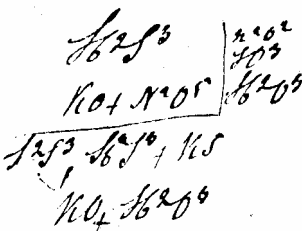 Sb²S³
KO+ N²O⁵
N²O²
SO³
Sb²O³
S²S³ Sb²S³ + KS
KO+ Sb²O³